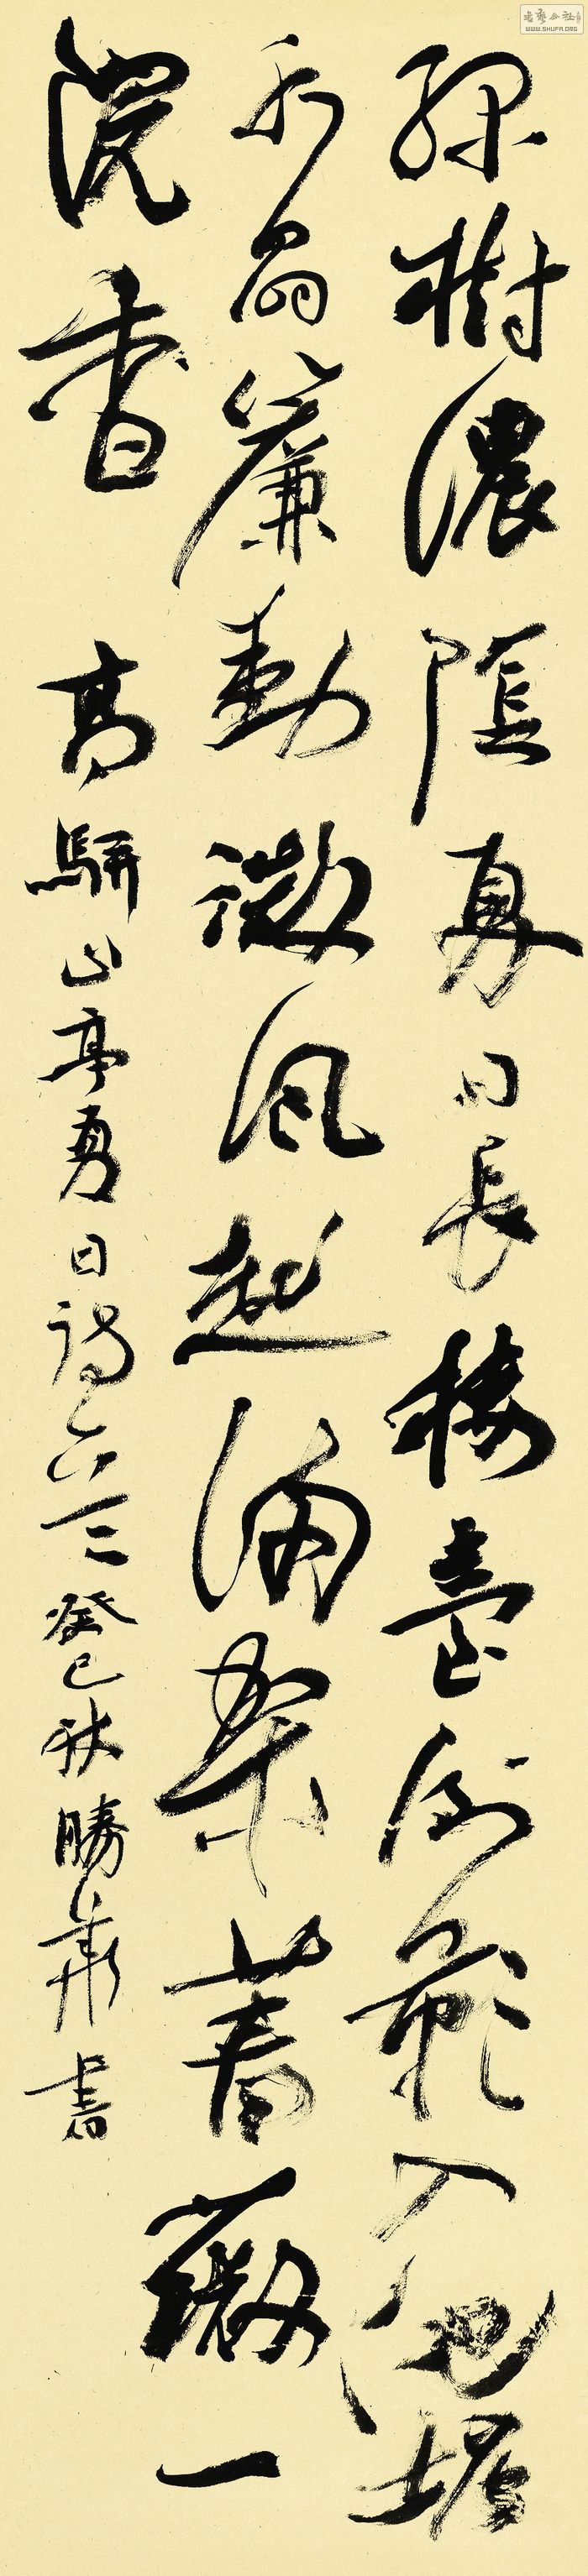 綠樹濃陰夏日長樓臺倒影入池塘
水晶簾動微風起滿架薔薇一
院香 高駢山亭夏日詩 癸巳秋勝書
書藝公社
WWW.SHUFA.ORG